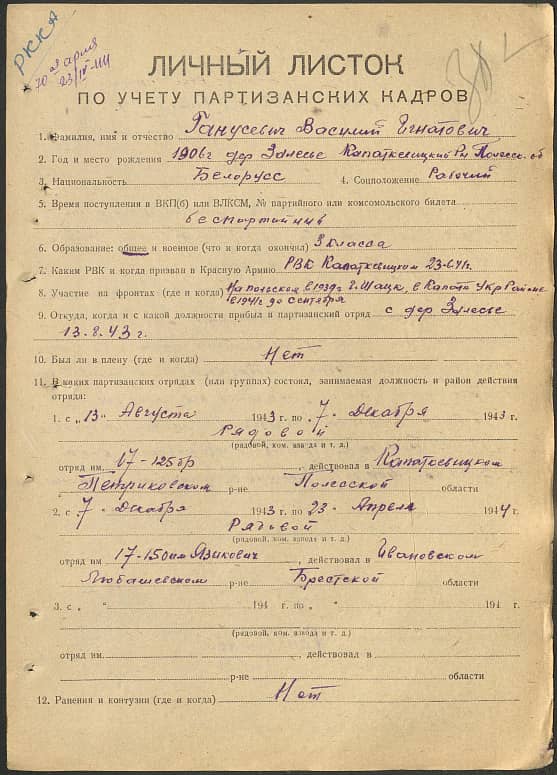 РККА
70 я армия
23/IV-44
ЛИЧНЫЙ ЛИСТОК
ПО УЧЕТУ ПАРТИЗАНСКИХ КАДРОВ
1. Фамилия, имя и отчество Ганусевич Василий Игнатович
2. Год и место рождения 1906 г дер Залесье Капаткевицкий Рн Полесск. об
3. Национальность Белорусс 4. Соцположение Рабочий
5. Время поступления в ВКП(б) или ВЛКСМ, № партийного или комсомольского билета
беспартийнив
6. Образование: общее и военное (что и когда окончил) 3 класса
7. Каким РВК и когда призван в Красную Армию РВК Капаткевицком 23-6.41 г.
8. Участие на фронтах (где и когда) На польском в 1939 г г. Шацк, в
в 1941 г до сентября
9. Откуда, когда и с какой должности прибыл в партизанский отряд с дер Залесье
13.8.43 г.
10. Был ли в плену (где и когда) Нет
11. В каких партизанских отрядах (или группах) состоял, занимаемая должность и район действия
отряда:
1. с „13" Августа 1943 г. по 7 - Декабря 1943 г.
Рядовой
(рядовой, ком. взвода и т. д.)
отряд им. 17-125 бр, действовал в Капаткевицком
Петриковском р-не Полесской области
2. с 7 - Декабря 1943 г. по 23 - Апреля 1944 г.
Рядовой
(рядовой, ком. взвода и т. д.)
отряд им 17-150 им Языкович, действовал в Ивановском
Любашевском р-не Брестской области
3. с „ " 194 г. по „ " 194 г.
(рядовой, ком. взвода и т. д.)
отряд им. , действовал в
р-не области
12. Ранения и контузии (где и когда) Нет